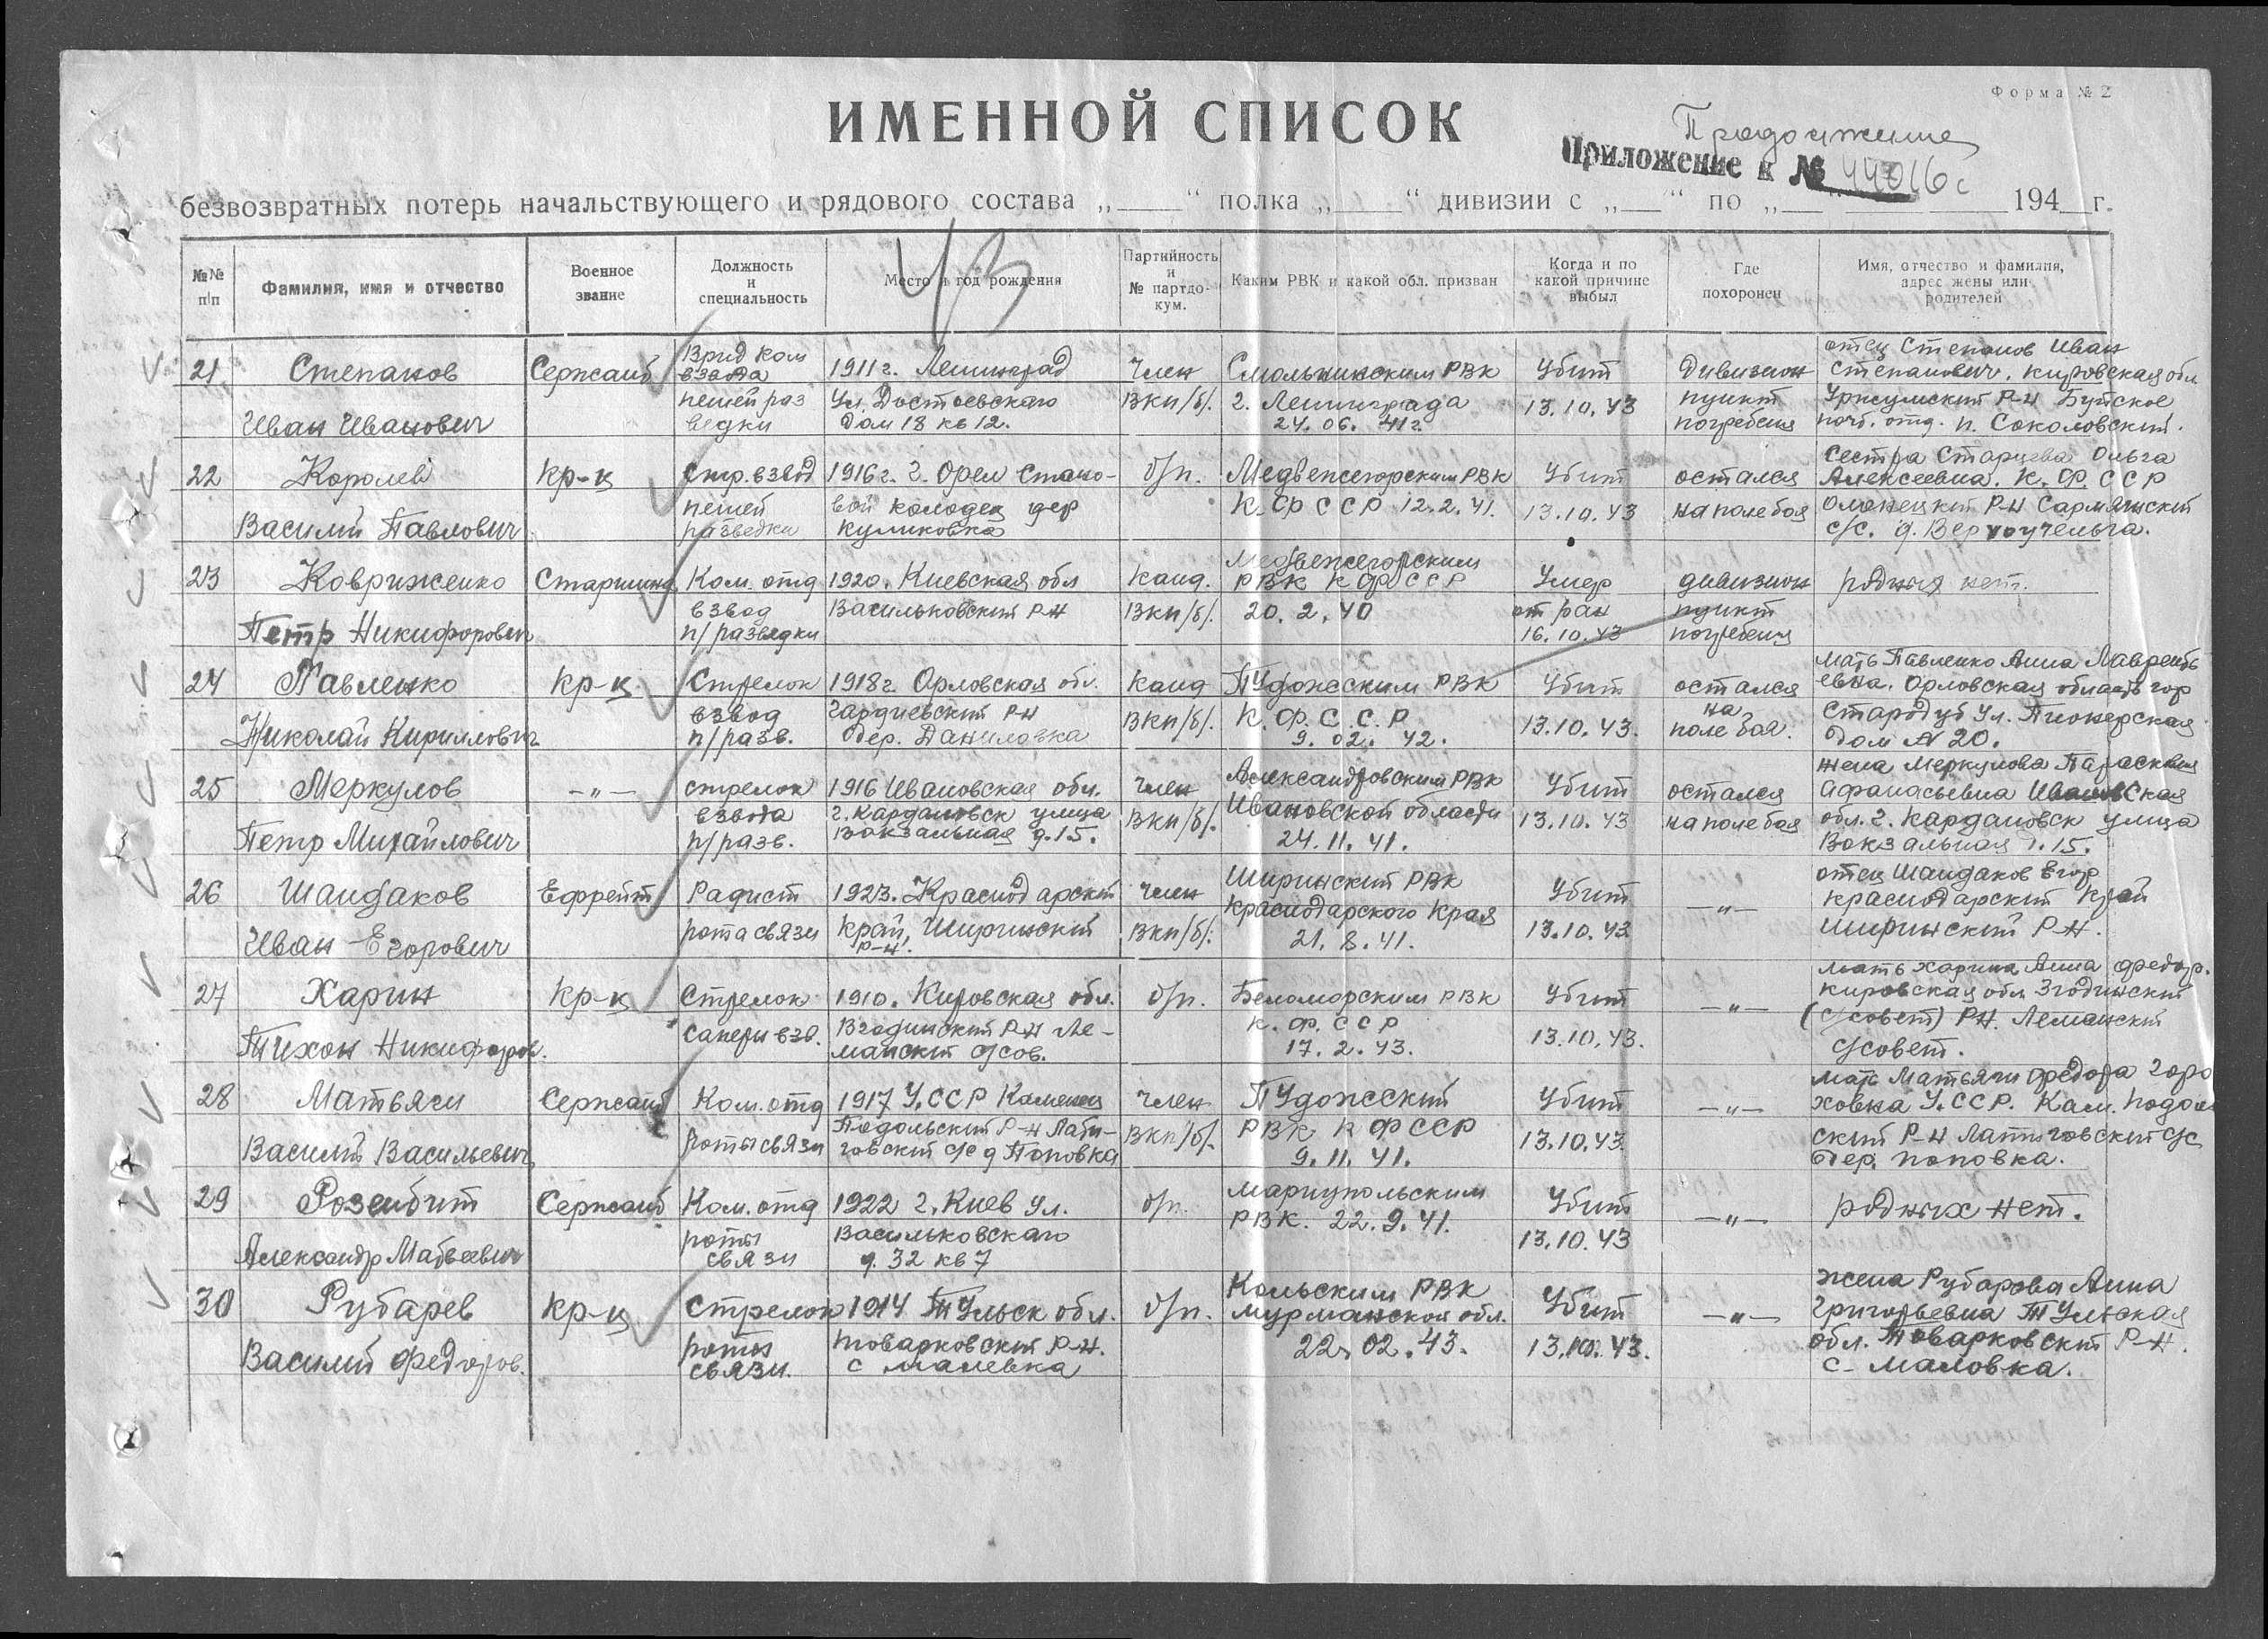 Форма № 2
ИМЕННОЙ СПИСОК
Продолжение
Приложение к № 44016с
безвозвратных потерь начальствующего и рядового состава „____“ полка „____“ дивизии с „__“ по „__“ ____ ____194__г.
43
№№ п/п
Фамилия, имя и отчество
Военное звание
Должность и специальность
Место и год рождения
Партийность и № партдокум.
Каким РВК и какой обл. призван
Когда и по какой причине выбыл
Где похоронен
Имя, отчество и фамилия, адрес жены или родителей
21 Степанов Иван Иванович
Сержант
Врид ком взвода пешей разведки
1911г. Ленинград Ул. Достоевского Дом 18 кв 12.
Член ВКП/б/.
Смольнинским РВК г. Ленинграда 24. 06. 41г.
Убит 13.10.43
Дивизион пункт погребения
отец Степанов Иван Степанович. Кировская обл Уржумский Р-н Буйское почт. отд. п. Соколовский.
22 Королев Василий Павлович
Кр-ц
Стр. взвод пешей разведки
1916г. г. Орел Становой колодец дер Куликовка
б/п.
Медвежегорским РВК К.Ф ССР 12.2.41.
Убит 13.10.43
остался на поле боя
Сестра Старцева Ольга Алексеевна. К. Ф. ССР Олонецкий Р-н с/с. д.
23 Ковриженко Петр Никифорович
Старшина
Ком. отд взвод п/разведки
1920. Киевская обл Васильковский Р-н
Канд. ВКП/б/.
Медвежегорским РВК К ФССР 20. 2. 40
Умер от ран 16.10.43
дивизион пункт погребения
родных нет.
24 Павленко Николай Кириллович
Кр-ц
Стрелок взвод п/разв.
1918г. Орловская обл. Р-н дер. Даниловка
Канд ВКП/б/.
Пудожским РВК К. Ф. С. С. Р 9. 02. 42.
Убит 13.10.43.
остался на поле боя.
Мать Павленко Анна Лаврентьевна. Орловская область гор Стародуб Ул. Пионерская Дом № 20.
25 Меркулов Петр Михайлович
—„—
стрелок взвода п/разв.
1916 Ивановская обл. г. Кардановск улица Вокзальная д. 15.
Член ВКП/б/.
Александровским РВК Ивановской области 24. 11. 41.
Убит 13.10.43
остался на поле боя
жена Меркулова Парасковия Афанасьевна Ивановская обл. г. Кардановск улица Вокзальная д. 15.
26 Шандаков Иван Егорович
Ефрейт
Радист рота связи
1923. Краснодарский Край, Ширинский Р-н.
Член ВКП/б/.
Ширинский РВК Краснодарского Края 21. 8. 41.
Убит 13.10.43
—„—
отец Шандаков Егор Краснодарский Край Ширинский Р-н.
27 Харин Тихон Никифоров.
Кр-ц
Стрелок саперн взв.
1910. Кировская обл. Р-н Леманский с/сов.
б/п.
Беломорским РВК К. Ф. ССР 17. 2. 43.
Убит 13.10.43.
—„—
мать Харина Анна Федор. Кировская обл (с/совет) Р-н. Леманский с/совет.
28 Матьяги Василий Васильевич
Сержант
Ком. отд роты связи
1917 У.ССР Каменец Подольский Р-н с/с д Поповка
Член ВКП/б/.
Пудожский РВК К ФССР 9. 11. 41.
Убит 13.10.43.
—„—
мать Матьяги Федора У.ССР. Кам. Подольский Р-н с/с Дер. Поповка.
29 Розенбит Александр Матвеевич
Сержант
Ком. отд роты связи
1922 г. Киев ул. Васильковского д. 32 кв 7
б/п.
Мариупольским РВК. 22. 9. 41.
Убит 13.10.43
—„—
родных нет.
30 Рубарев Василий Федоров.
Кр-ц
Стрелок роты связи.
1914 Тульск обл. Товарковский Р-н. с Малевка
б/п.
Кольским РВК Мурманской обл. 22. 02. 43.
Убит 13.10.43.
—„—
Жена Рубарова Анна Григорьевна Тульская обл. Товарковский Р-н. с. Маловка.